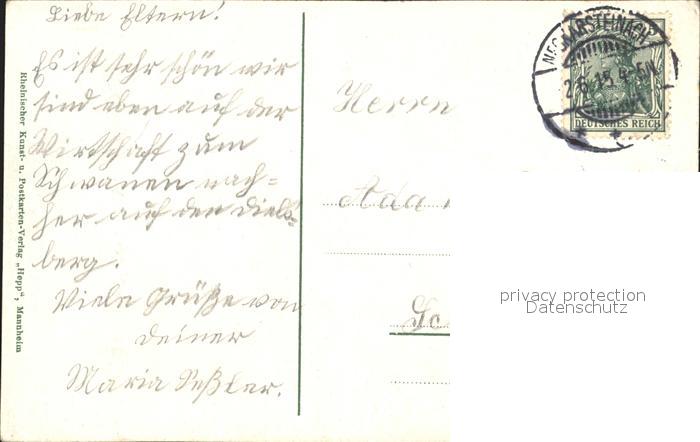 Liebe Eltern!
Es ist sehr schön wir
sind eben auf der
Wirtschaft zum
Schwanen nach=
her auf den Dils=
berg.
Viele Grüße von
deiner
Maria
Rheinischer Kunst- u. Postkarten-Verlag „Hepp“, Mannheim
Herrn
NECKARSTEINACH
2.6.15.4-5N
DEUTSCHES REICH
privacy protection
Datenschutz